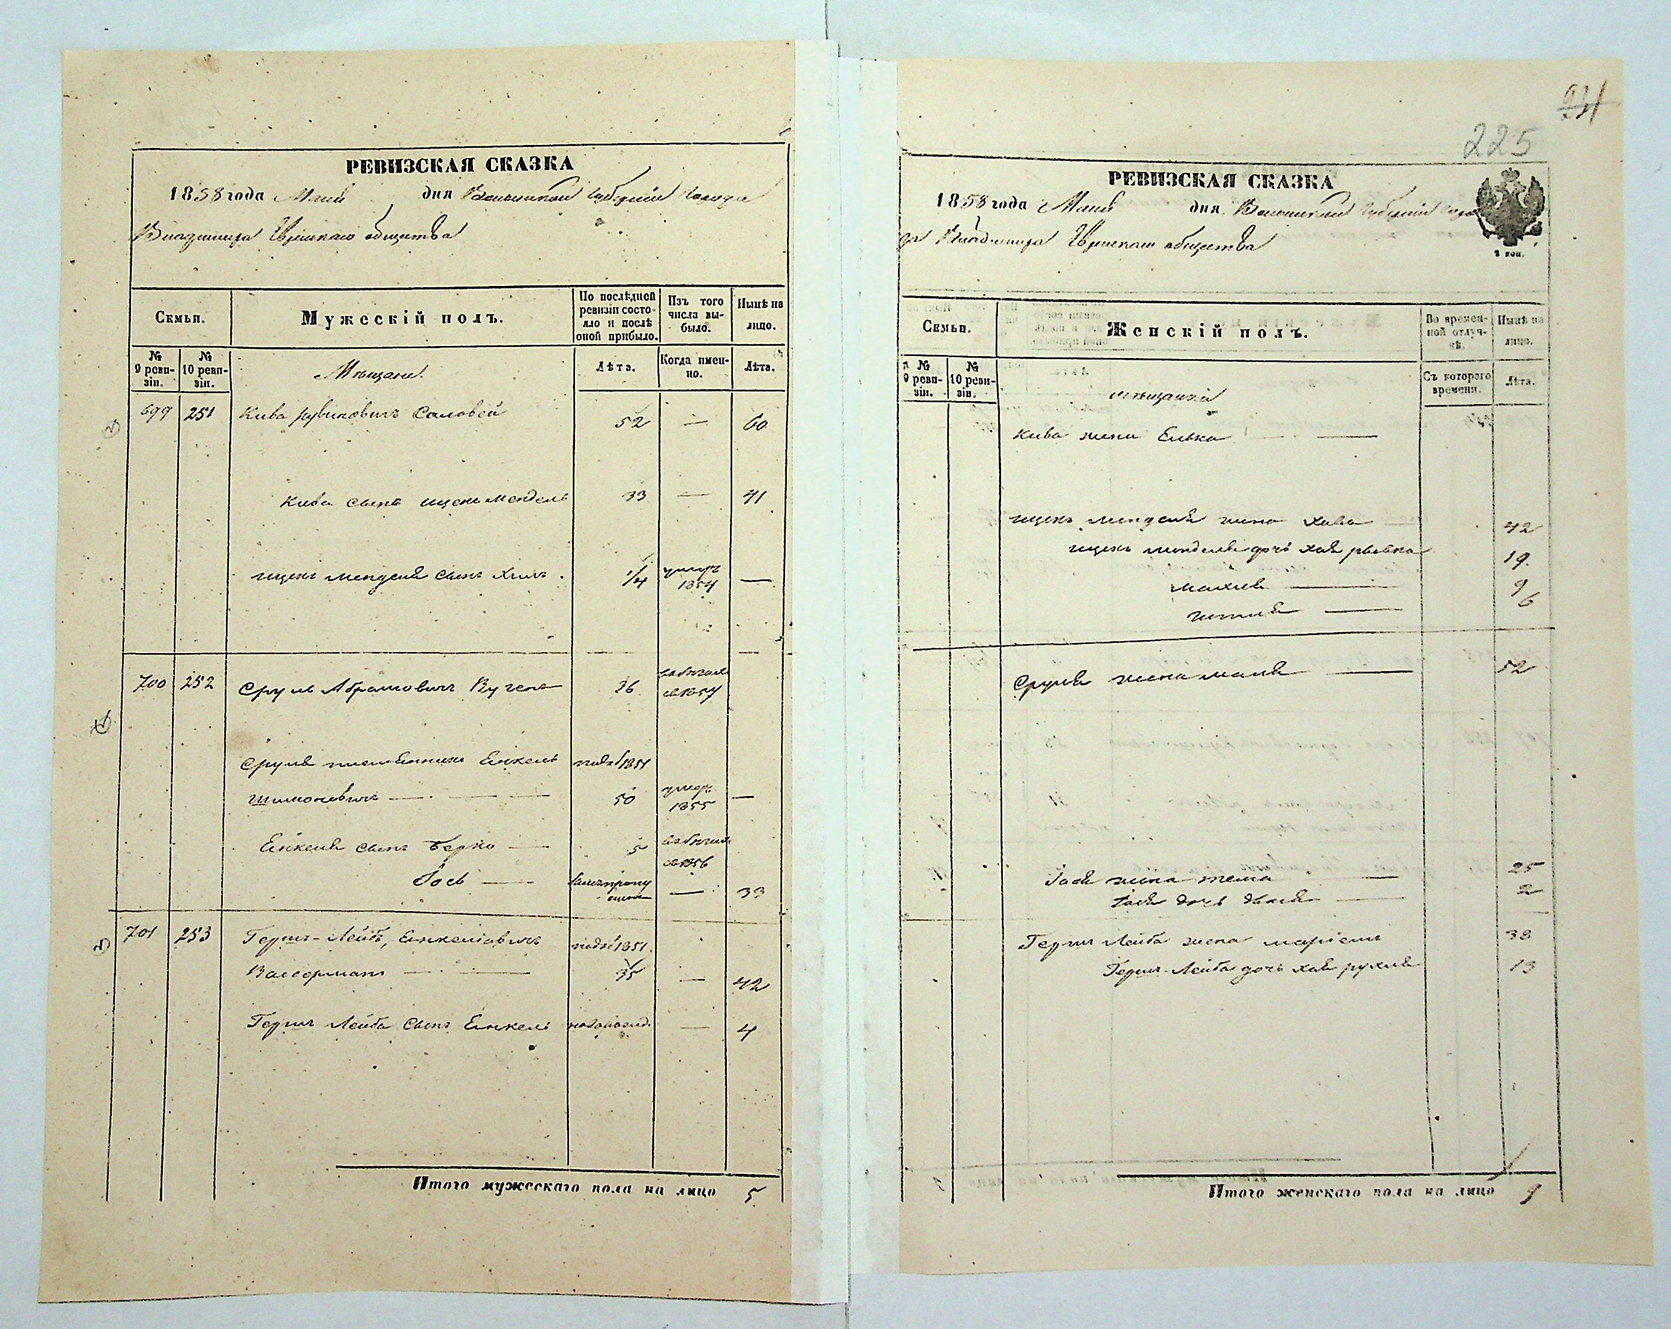 РЕВИЗСКАЯ СКАЗКА
1858 года Маія дня Волынской Губерніи Города
Владимира Еврейскаго общества
Семьи.
Мужескій полъ.
По послѣдней ревизіи состояло и послѣ оной прибыло.
Изъ того числа выбыло.
Нынѣ на лицо.
№ 9 ревизіи.
№ 10 ревизіи.
Мѣщане.
Лѣта.
Когда именно.
Лѣта.
699 251 Кива Рувиновичъ Саловей 52 — 60
Кива сынъ Ицекъ Мендель 33 — 41
Ицекъ Менделя сынъ Хаимъ. 1/4 умеръ 1854 —
700 252 Сруль Абрамовичъ 36
Сруля племянникъ Енкель 1851
Шимоновичъ — 50 умеръ 1855 —
Енкеля сынъ Берко — 5 1856
Іось — — 33
701 253 Гершъ-Лейба Енкелiовичъ 1851
Васерманъ — 35 — 42
Гершъ Лейба сынъ Енкель новорожд. — 4
Итого мужескаго пола на лицо 5
231
225
РЕВИЗСКАЯ СКАЗКА
1858 года Маія дня Волынской Губерніи Горо
да Владимира Еврейскаго общества
Семьи.
Женскій полъ.
Во временной отлучкѣ.
Нынѣ на лицо.
№ 9 ревизіи.
№ 10 ревизіи.
Мѣщанки
Съ котораго времени.
Лѣта.
Кива жена Елька —
Ицекъ Менделя жена Хава 42
Ицекъ Менделя дочь Хая Рывка 19.
Малка — 9
Гитля — 6
Сруля жена Маля — 52
Іося жена — 25
Іося дочь — 2
Гершъ Лейба жена Маріемъ 38
Гершъ-Лейба дочь Хая Рухля 13
Итого женскаго пола на лицо 9